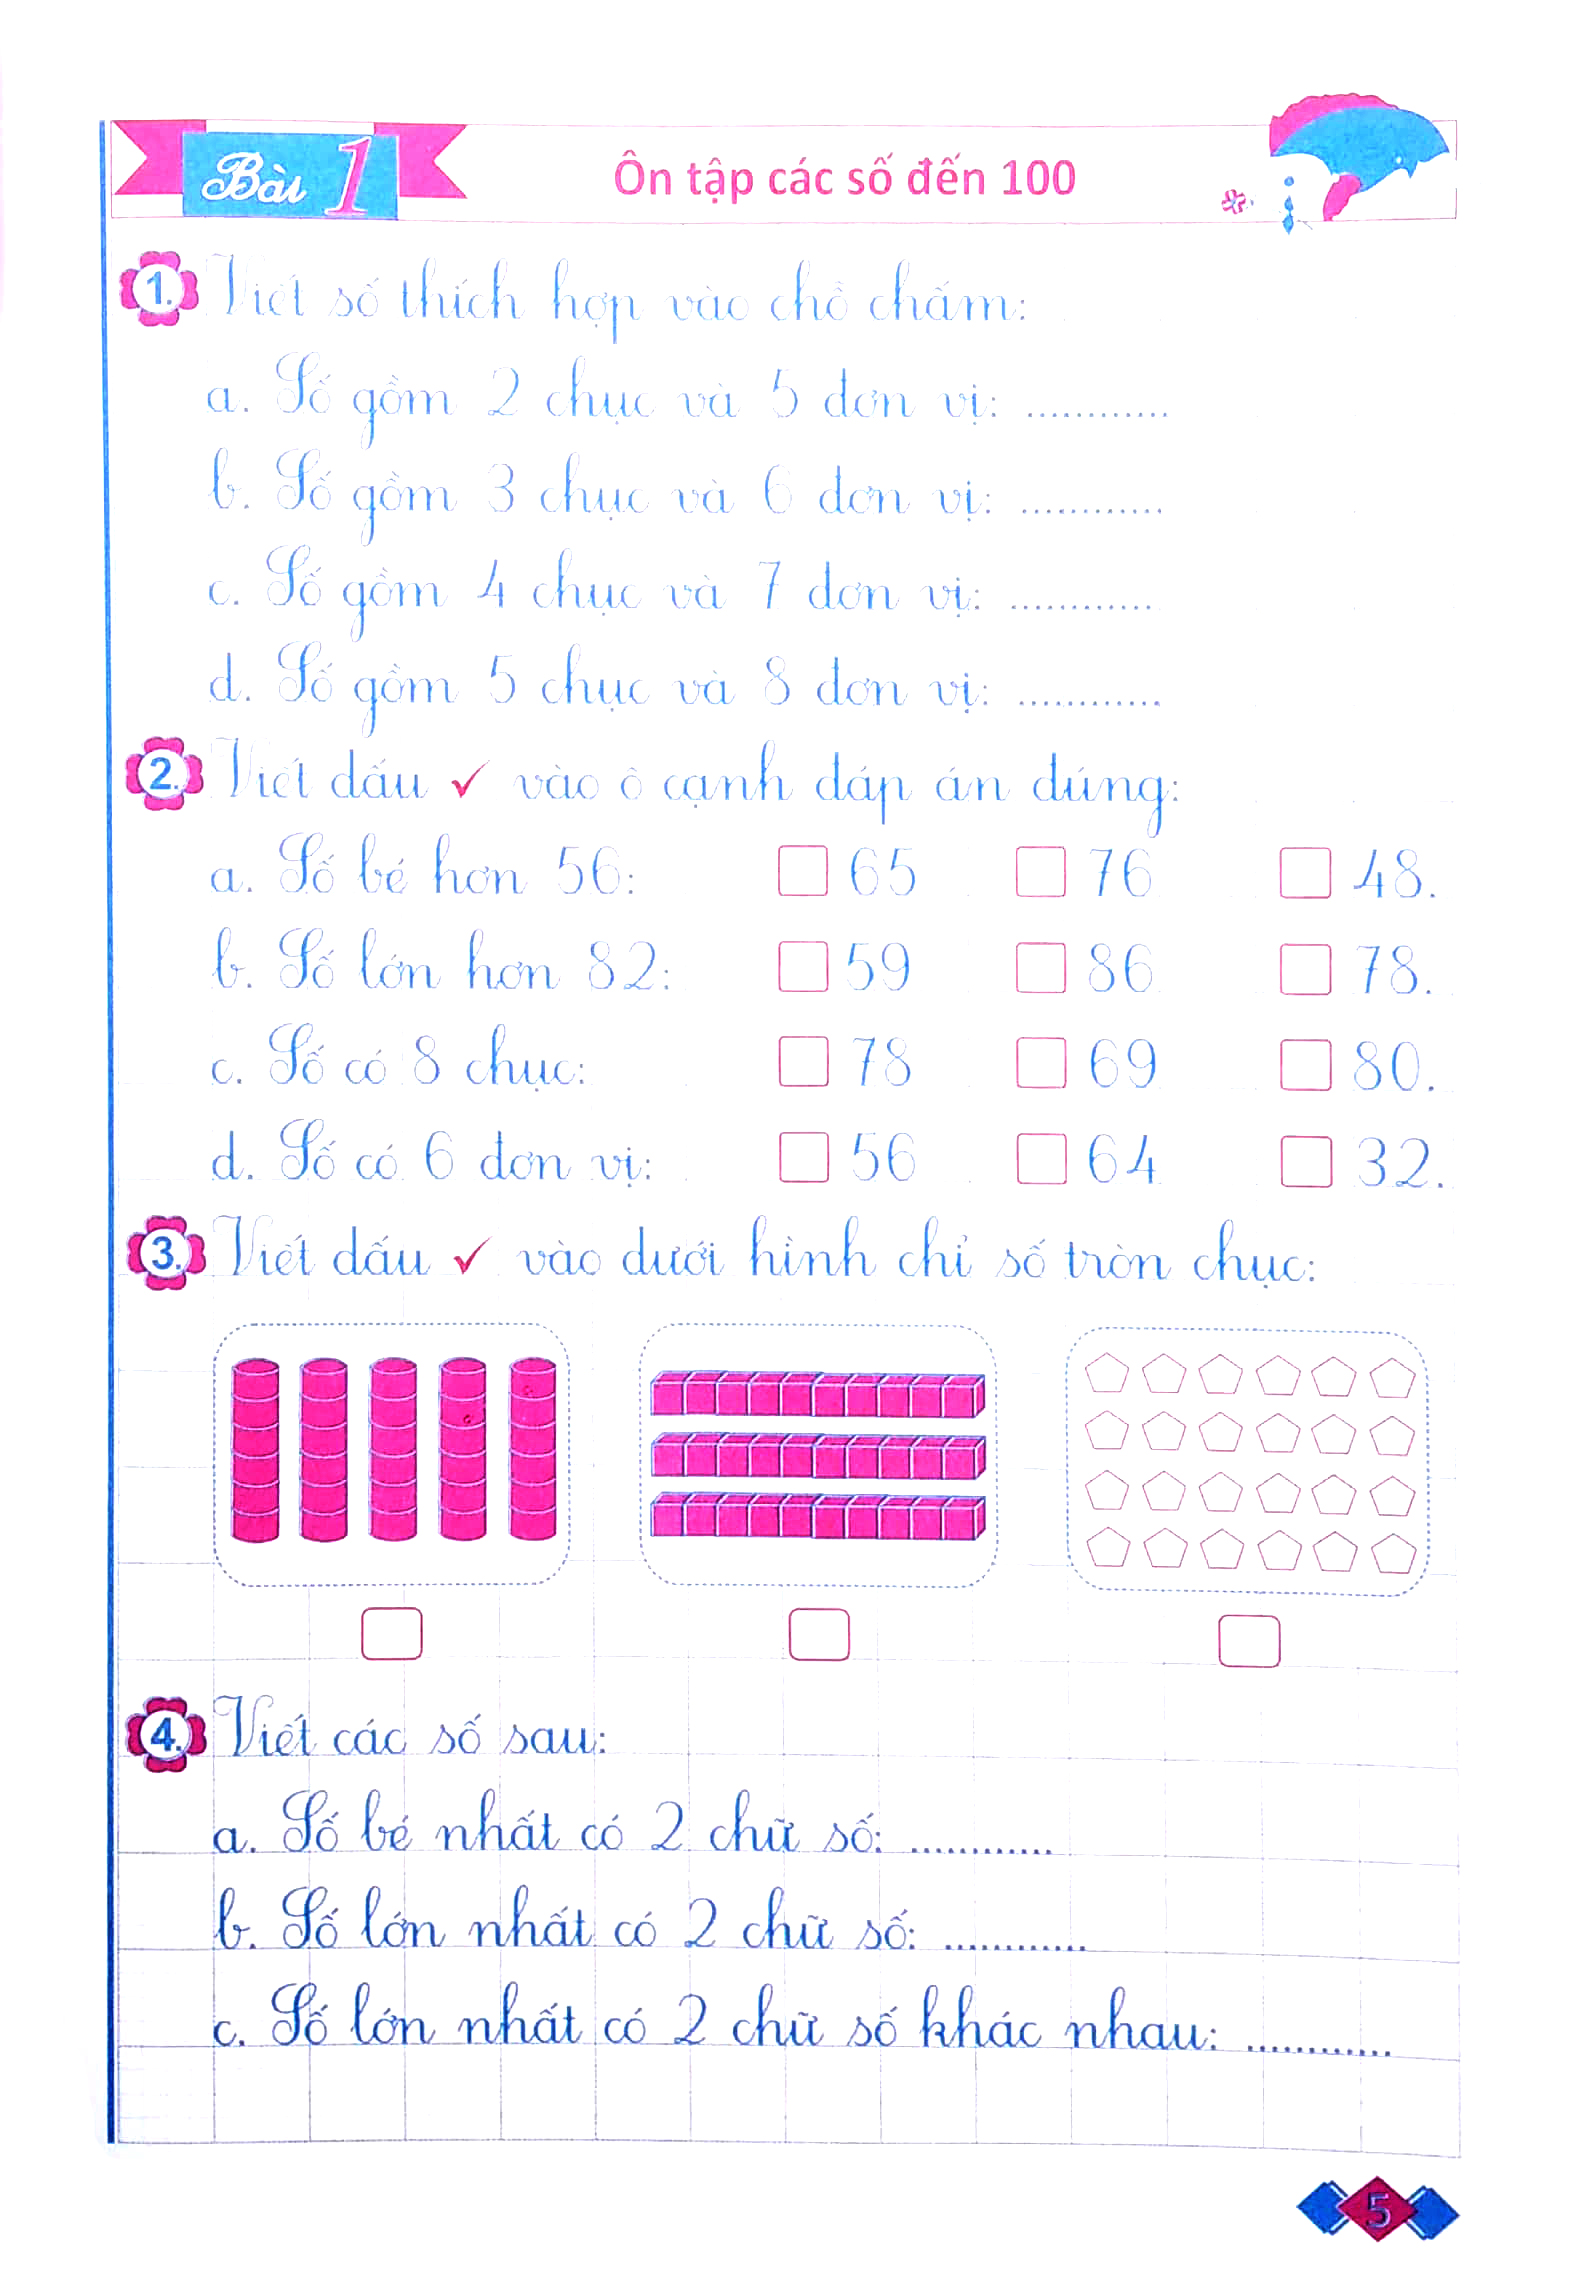 Bài 1
Ôn tập các số đến 100
1. Viết số thích hợp vào chỗ chấm:
a. Số gồm 2 chục và 5 đơn vị: ............
b. Số gồm 3 chục và 6 đơn vị: ............
c. Số gồm 4 chục và 7 đơn vị: ............
d. Số gồm 5 chục và 8 đơn vị: ............
2. Viết dấu ✓ vào ô cạnh đáp án đúng:
a. Số bé hơn 56: □ 65 □ 76 □ 48.
b. Số lớn hơn 82: □ 59 □ 86 □ 78.
c. Số có 8 chục: □ 78 □ 69 □ 80.
d. Số có 6 đơn vị: □ 56 □ 64 □ 32.
3. Viết dấu ✓ vào dưới hình chỉ số tròn chục:
4. Viết các số sau:
a. Số bé nhất có 2 chữ số: ............
b. Số lớn nhất có 2 chữ số: ............
c. Số lớn nhất có 2 chữ số khác nhau: ............
5